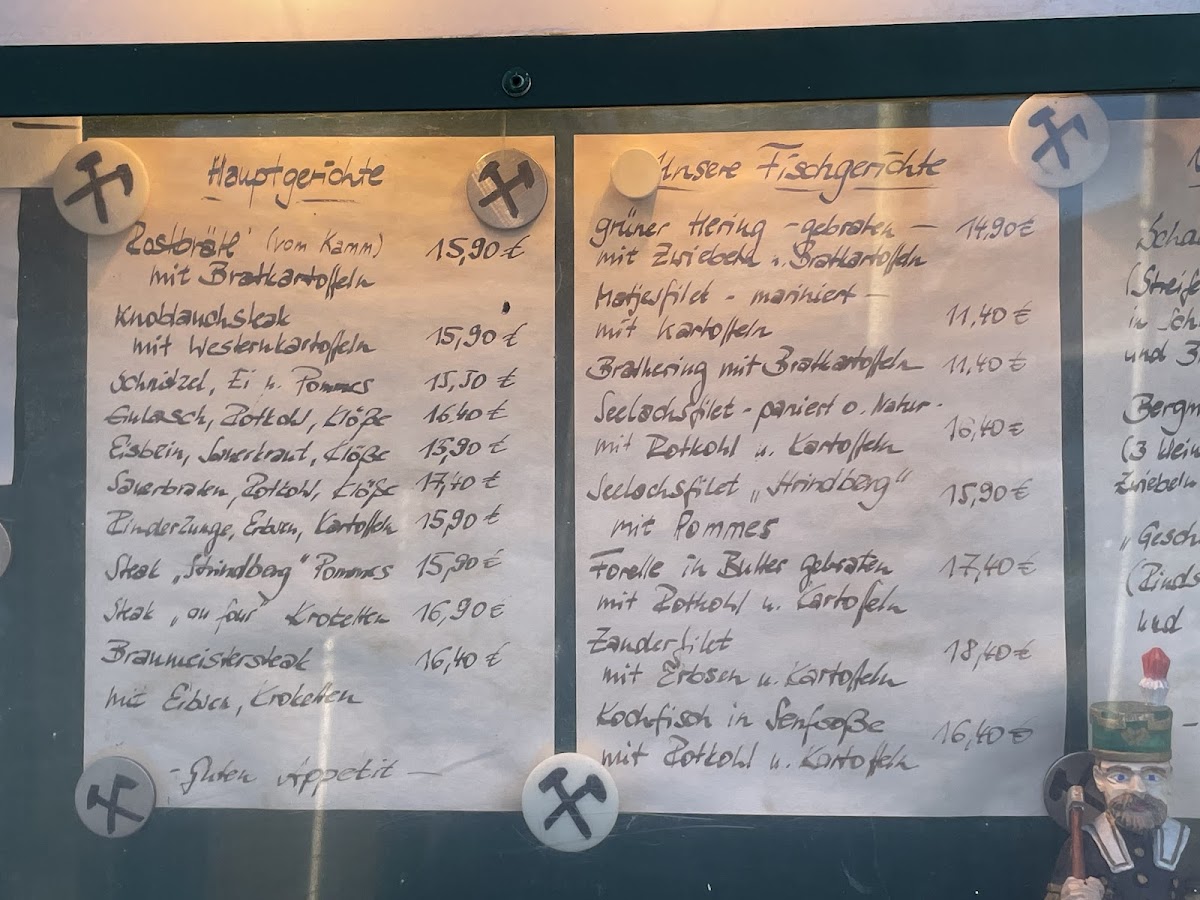 Hauptgerichte
"Rostbrätl" (vom Kamm) 15,90 €
mit Bratkartoffeln
Knoblauchsteak
mit Westernkartoffeln 15,90 €
Schnitzel, Ei u. Pommes 15,50 €
Gulasch, Rotkohl, Klöße 16,40 €
Eisbein, Sauerkraut, Klöße 15,90 €
Sauerbraten, Rotkohl, Klöße 17,40 €
Rinderzunge, Erbsen, Kartoffeln 15,90 €
Steak „Strindberg" Pommes 15,90 €
Steak „au four" Kroketten 16,90 €
Braumeistersteak 16,40 €
mit Erbsen, Kroketten
- Guten Appetit -
Unsere Fischgerichte
grüner Hering - gebraten - 14,90 €
mit Zwiebeln u. Bratkartoffeln
Matjesfilet - mariniert -
mit Kartoffeln 11,40 €
Brathering mit Bratkartoffeln 11,40 €
Seelachsfilet - paniert o. Natur -
mit Rotkohl u. Kartoffeln 16,40 €
Seelachsfilet „Strindberg" 15,90 €
mit Pommes
Forelle in Butter gebraten 17,40 €
mit Rotkohl u. Kartoffeln
Zanderfilet 18,40 €
mit Erbsen u. Kartoffeln
Kochfisch in Senfsoße 16,40 €
mit Rotkohl u. Kartoffeln
(Streife
und B
Bergm
(3 klein
Zwiebeln
„Gesch
(Rinds
und